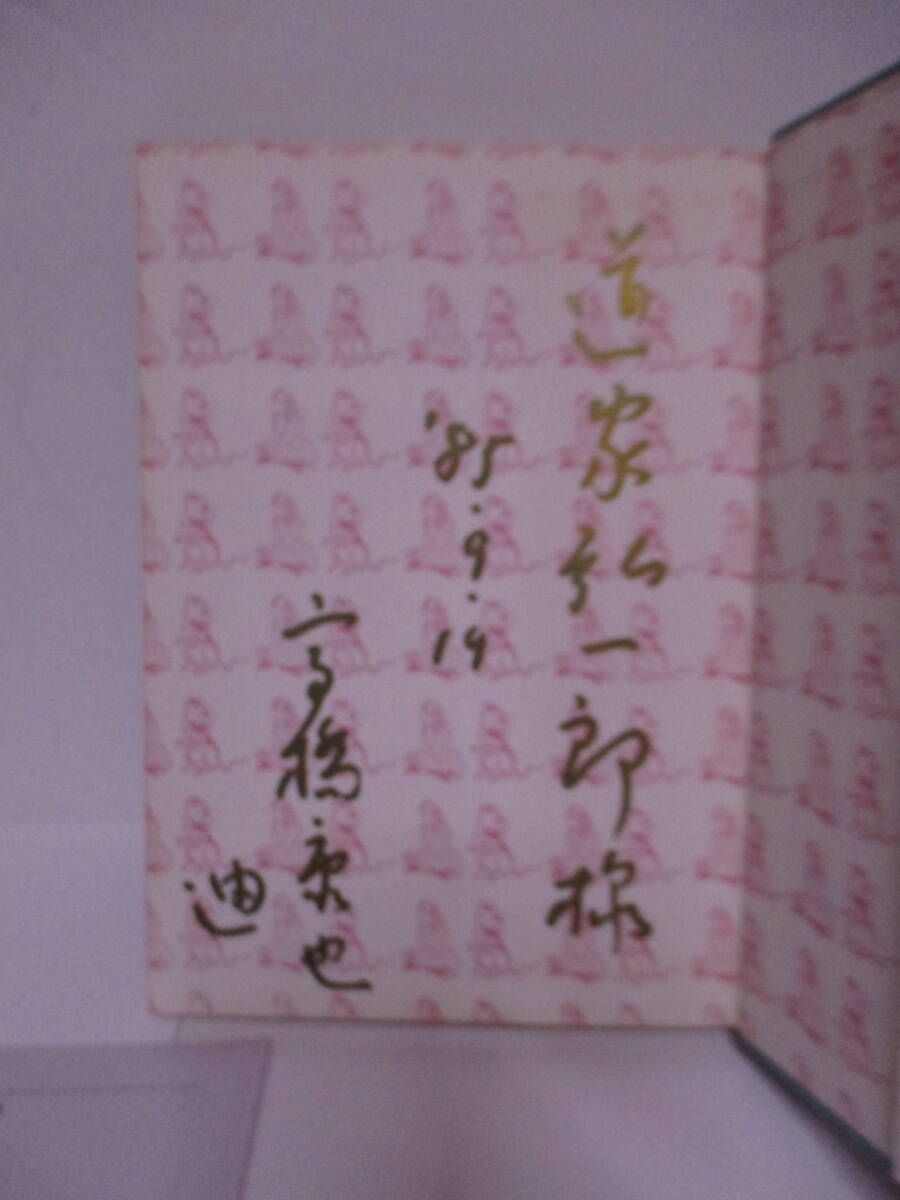 道家弘一郎様
'85.9.19
高橋康也
迪